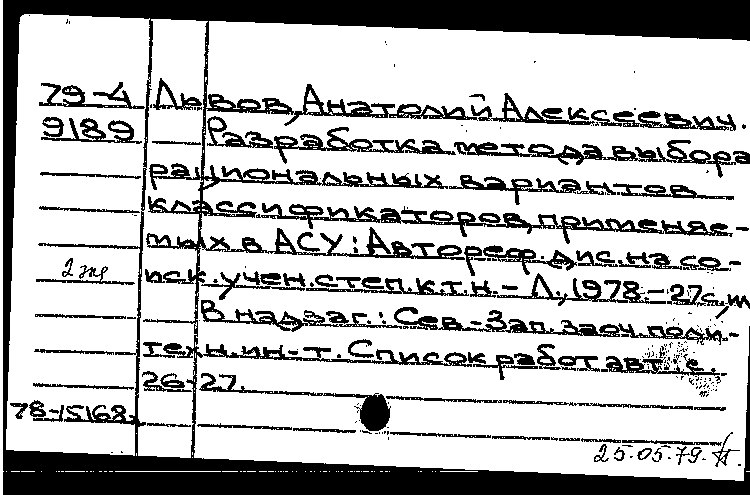 79-4 Львов, Анатолий Алексеевич.
9189 Разработка метода выбора
рациональных вариантов
классификаторов, применяе-
мых в АСУ: Автореф. дис. на со-
2 экз иск. учен. степ. к.т.н. - Л., 1978. - 27с.,
В надзаг.: Сев.-Зап. заоч. поли-
техн. ин-т. Список работ авт.: с.
26-27.
78-15168.
25.05.79.